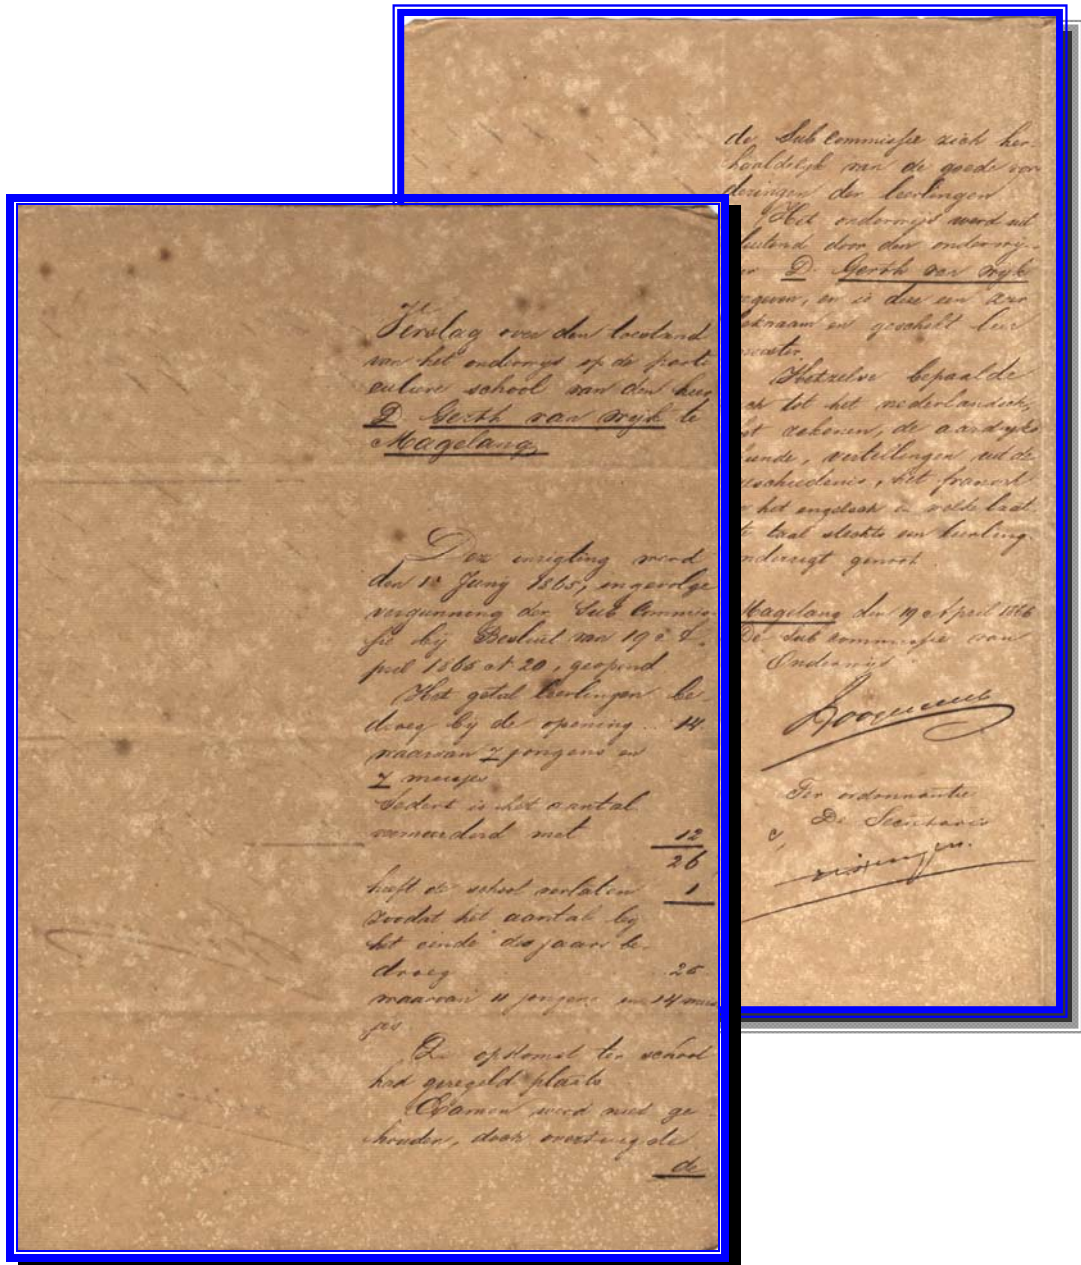 Verslag over den toestand
van het onderwijs op de parti
culiere school van den heer
D. Gerth van Wijk te
Magelang.
Deze inrigting werd
den 1e Junij 1865, ingevolge
vergunning der Sub Commis-
sie bij Besluit van 19 A
pril 1865 N 20, geopend.
Het getal leerlingen be-
droeg bij de opening 14.
waarvan 7 jongens en
7 meisjes
Sedert is het aantal
vermeerderd met 12
26
heeft de school verlaten 1
zoodat het aantal bij
het einde des jaars be-
droeg 25
waarvan 11 jongens en 14 meis
jes.
De opkomst ter school
had geregeld plaats
Examen werd niet ge
houden, doch overtuigde
de
de Sub Commissie zich her-
haaldelijk van de goede vor
deringen der leerlingen
Het onderwijs werd uit
sluitend door den onderwij-
zer D. Gerth van Wijk
gegeven, en is deze een
bekwaam en geschikt leer
meester.
Hetzelve bepaalde
zich tot het nederlandsch,
het rekenen, de aardrijks
kunde, vertellingen uit de
geschiedenis, het fransch
en het engelsch in welke laat
ste taal slechts een leerling
onderrigt genoot.
Magelang den 19 April 1866
De Sub commissie van
Onderwijs
Ter ordonnantie
De Secretaris